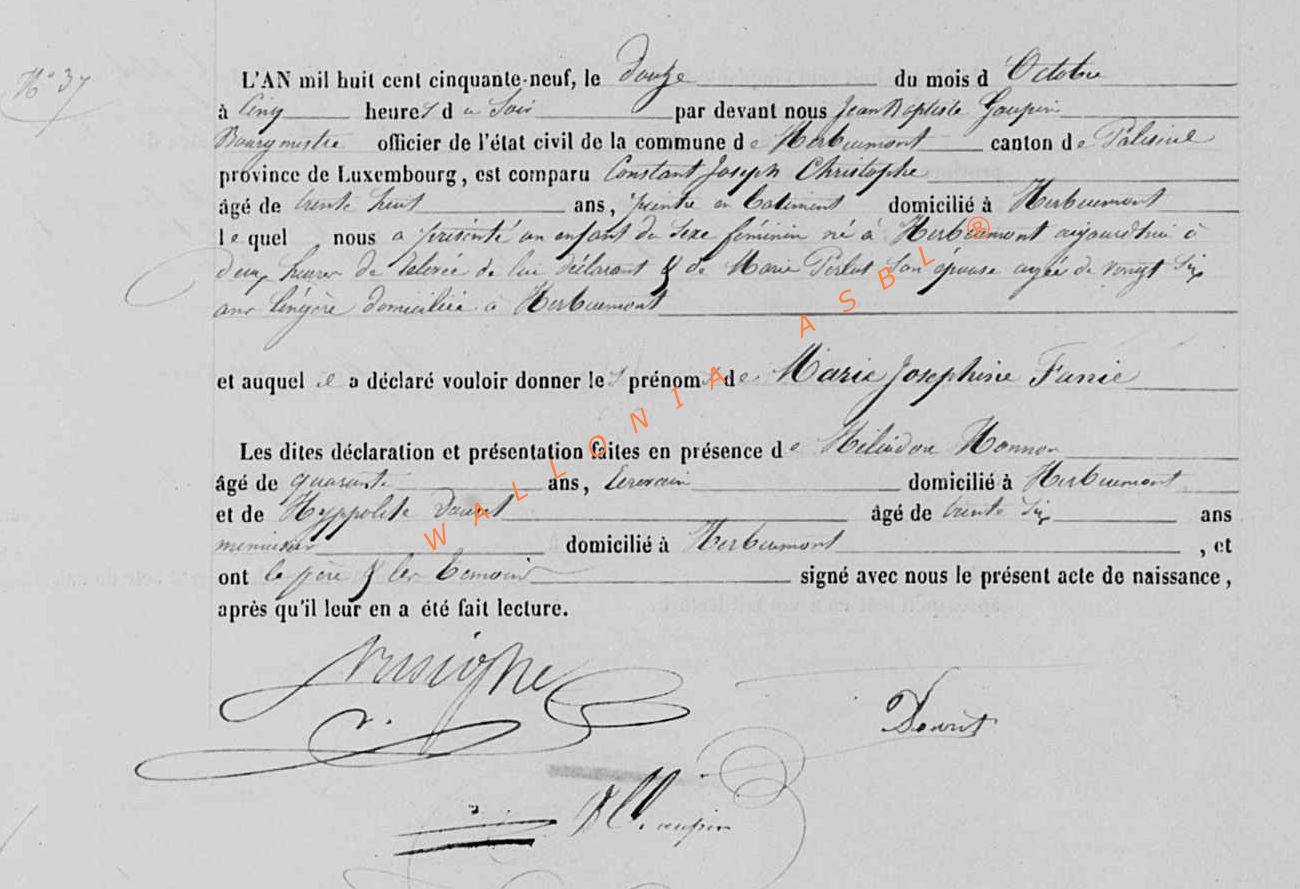 N° 37
L'AN mil huit cent cinquante-neuf, le douze du mois d'Octobre
à Cinq heures du Soir par devant nous Jean Baptiste Goupin
Bourgmestre officier de l'état civil de la commune de Herbeumont canton de Paliseul
province de Luxembourg, est comparu Constant Joseph Christophe
âgé de trente huit ans, peintre en batiment domicilié à Herbeumont
lequel nous a présenté un enfant du Sexe féminin né à Herbeumont aujourdhui à
deux heures de relevée de lui déclarant & de Marie Perlot Son épouse agée de vingt Six
ans lingère domiciliée à Herbeumont
et auquel il a déclaré vouloir donner les prénoms de Marie Josephine Fanie
Les dites déclaration et présentation faites en présence de Héliodore
âgé de quarante ans, domicilié à Herbeumont
et de Hyppolite âgé de trente Six ans
menuisier domicilié à Herbeumont, et
ont le père & les temoins signé avec nous le présent acte de naissance,
après qu'il leur en a été fait lecture.
WALLONIA ASBL ®